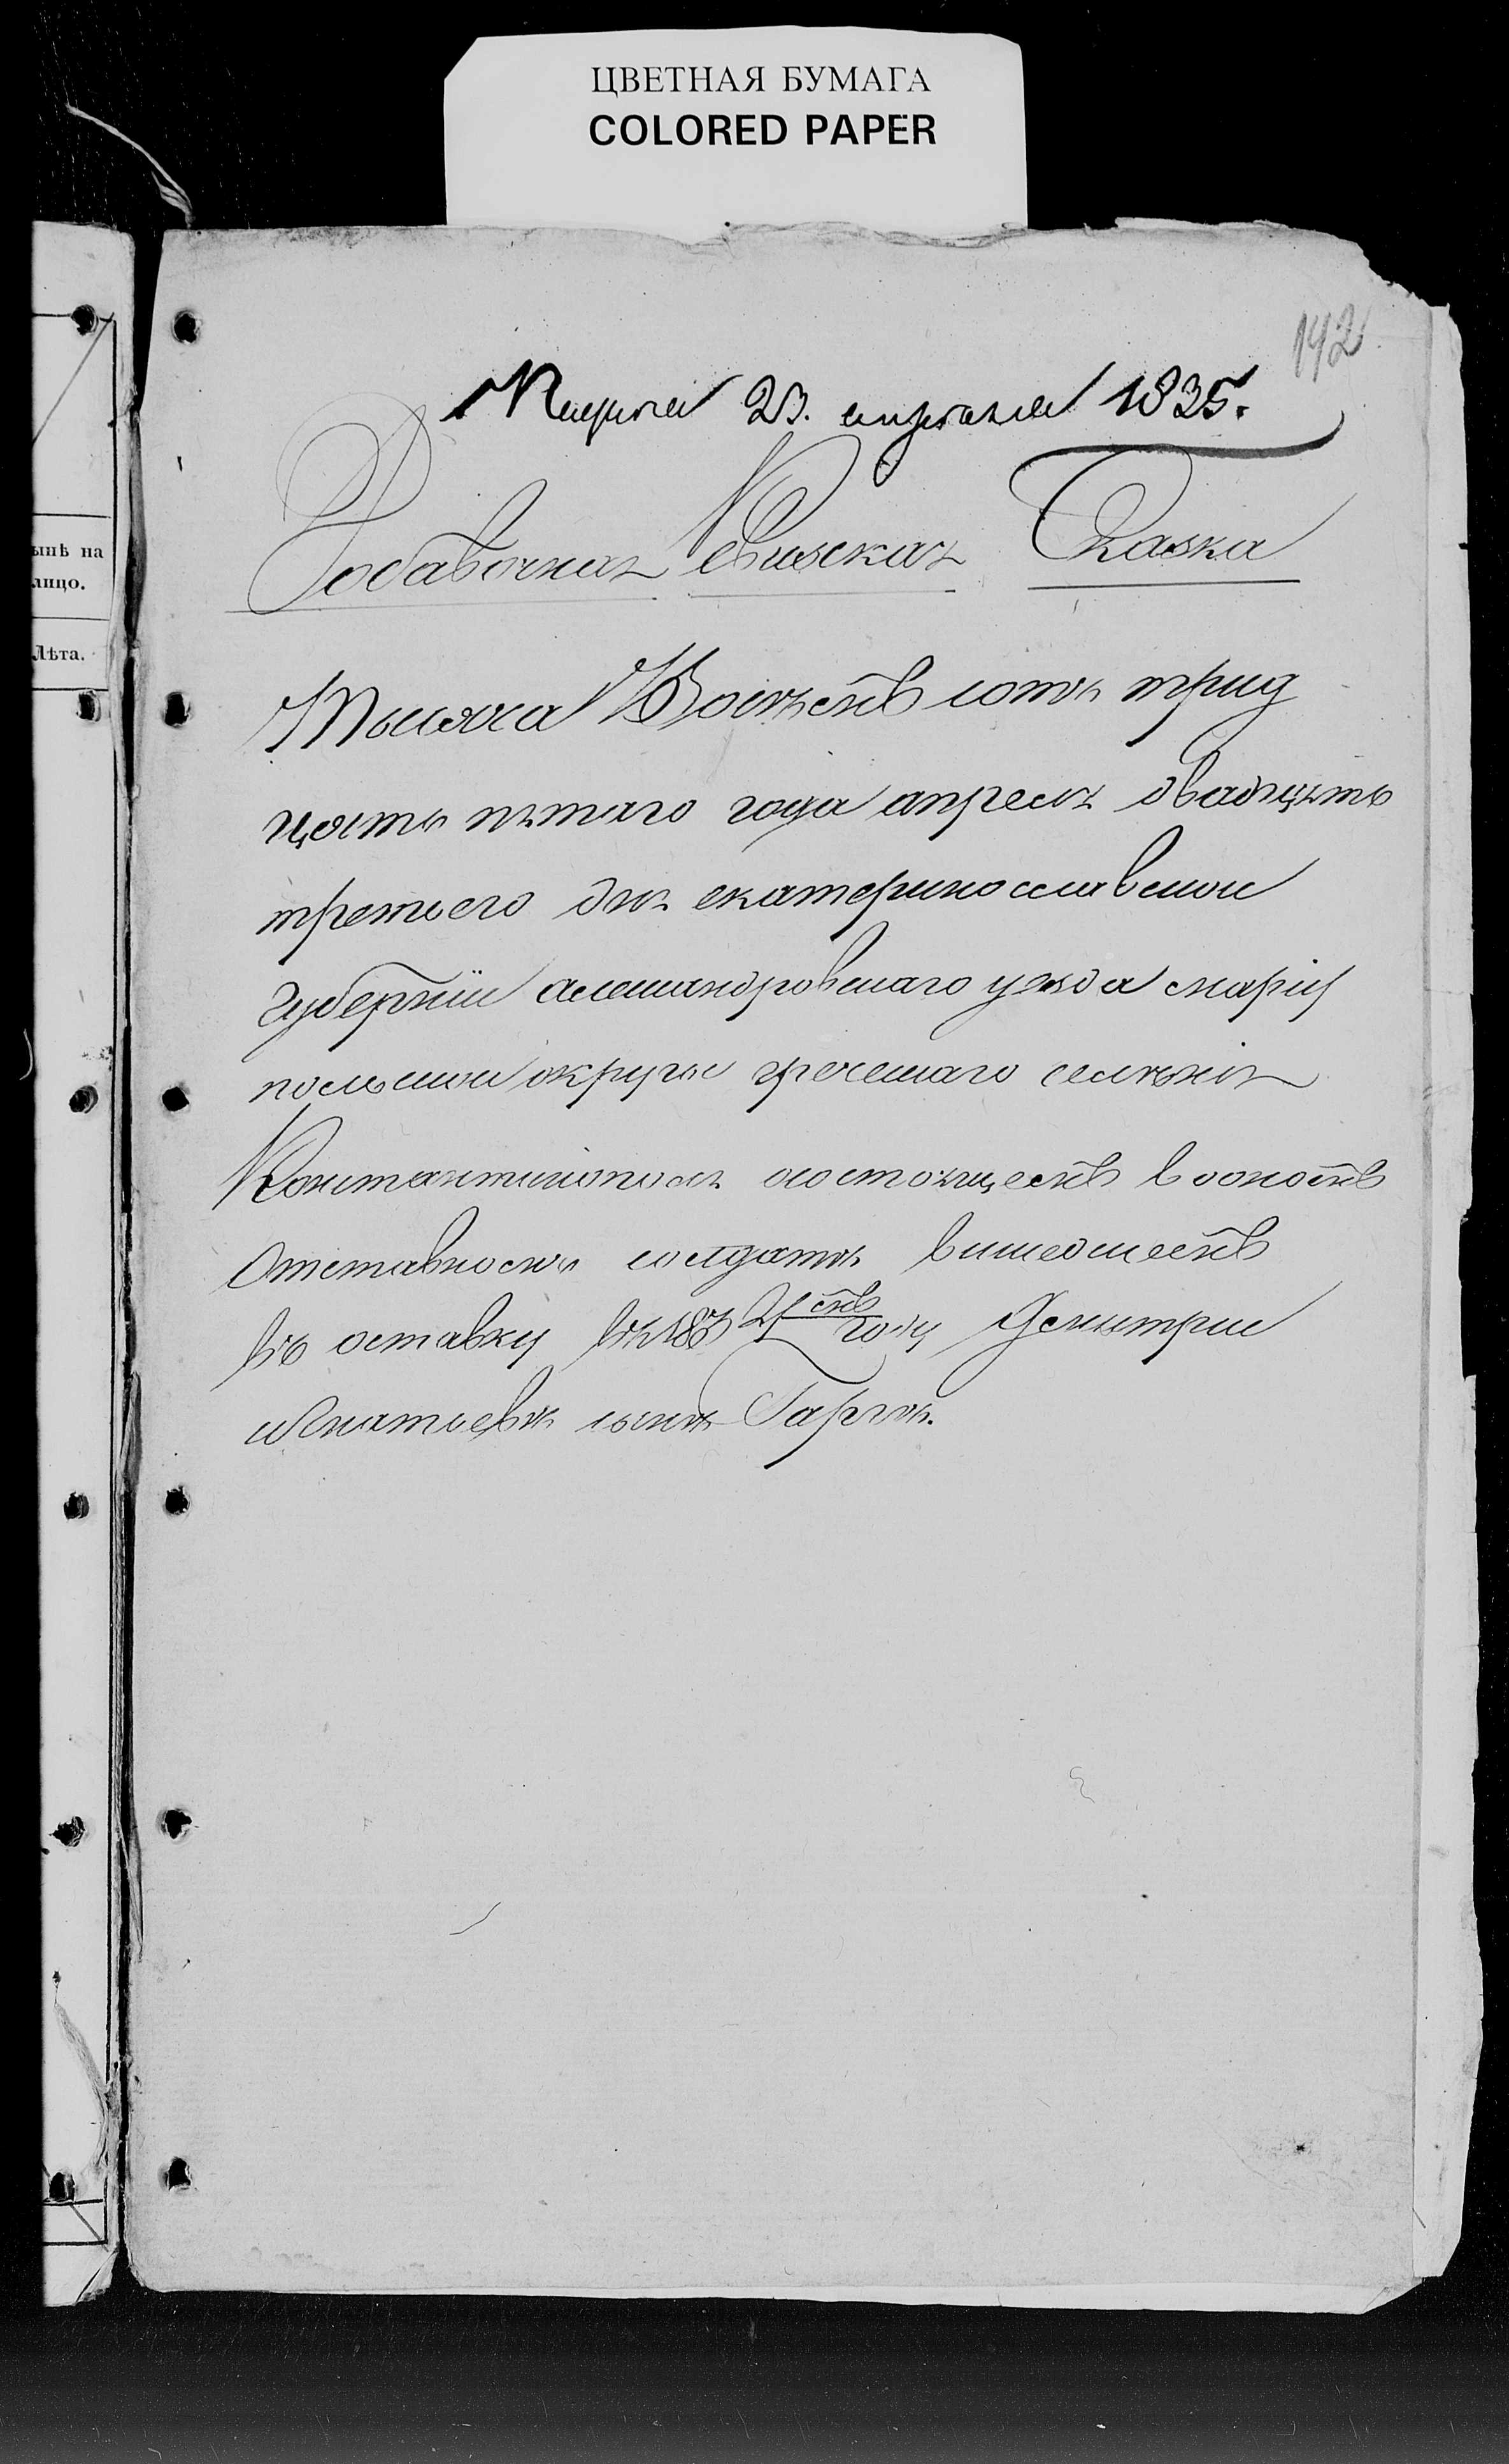 ЦВЕТНАЯ БУМАГА
COLORED PAPER
142
23. апреля 1835.
Добавочная Ревизская Сказка
ынѣ на
лицо.
Лѣта.
Тысяча Восемь сотъ трид
цять пятаго года апреля двадцять
третьего дня екатеринославской
Губернии александровскаго уезда марїу
польской округи греческаго селенія
Константинополя состоящемъ в ономъ
Отставномъ солдатъ вишедшемъ
въ оставку въ 183 году Дмитрие
Игнатьевъ сынъ Горгоь.